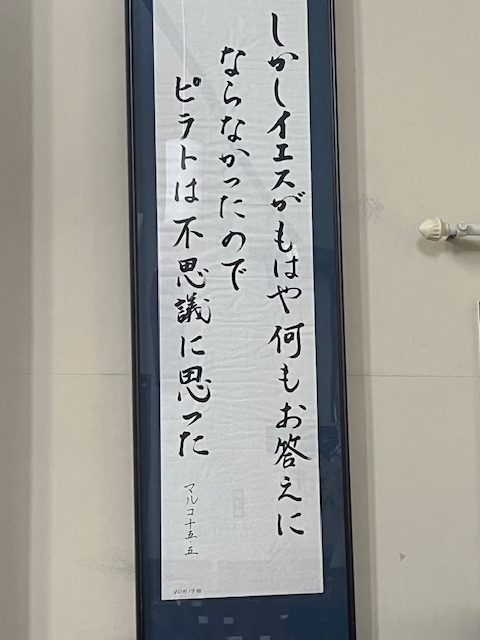 しかしイエスがもはや何もお答えに
ならなかったので
ピラトは不思議に思った
マルコ十五・五